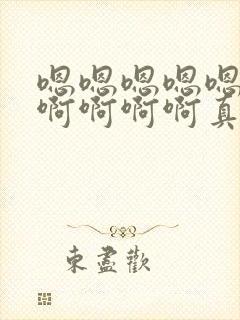 嗯嗯嗯嗯嗯
啊啊啊啊真
束盡歡